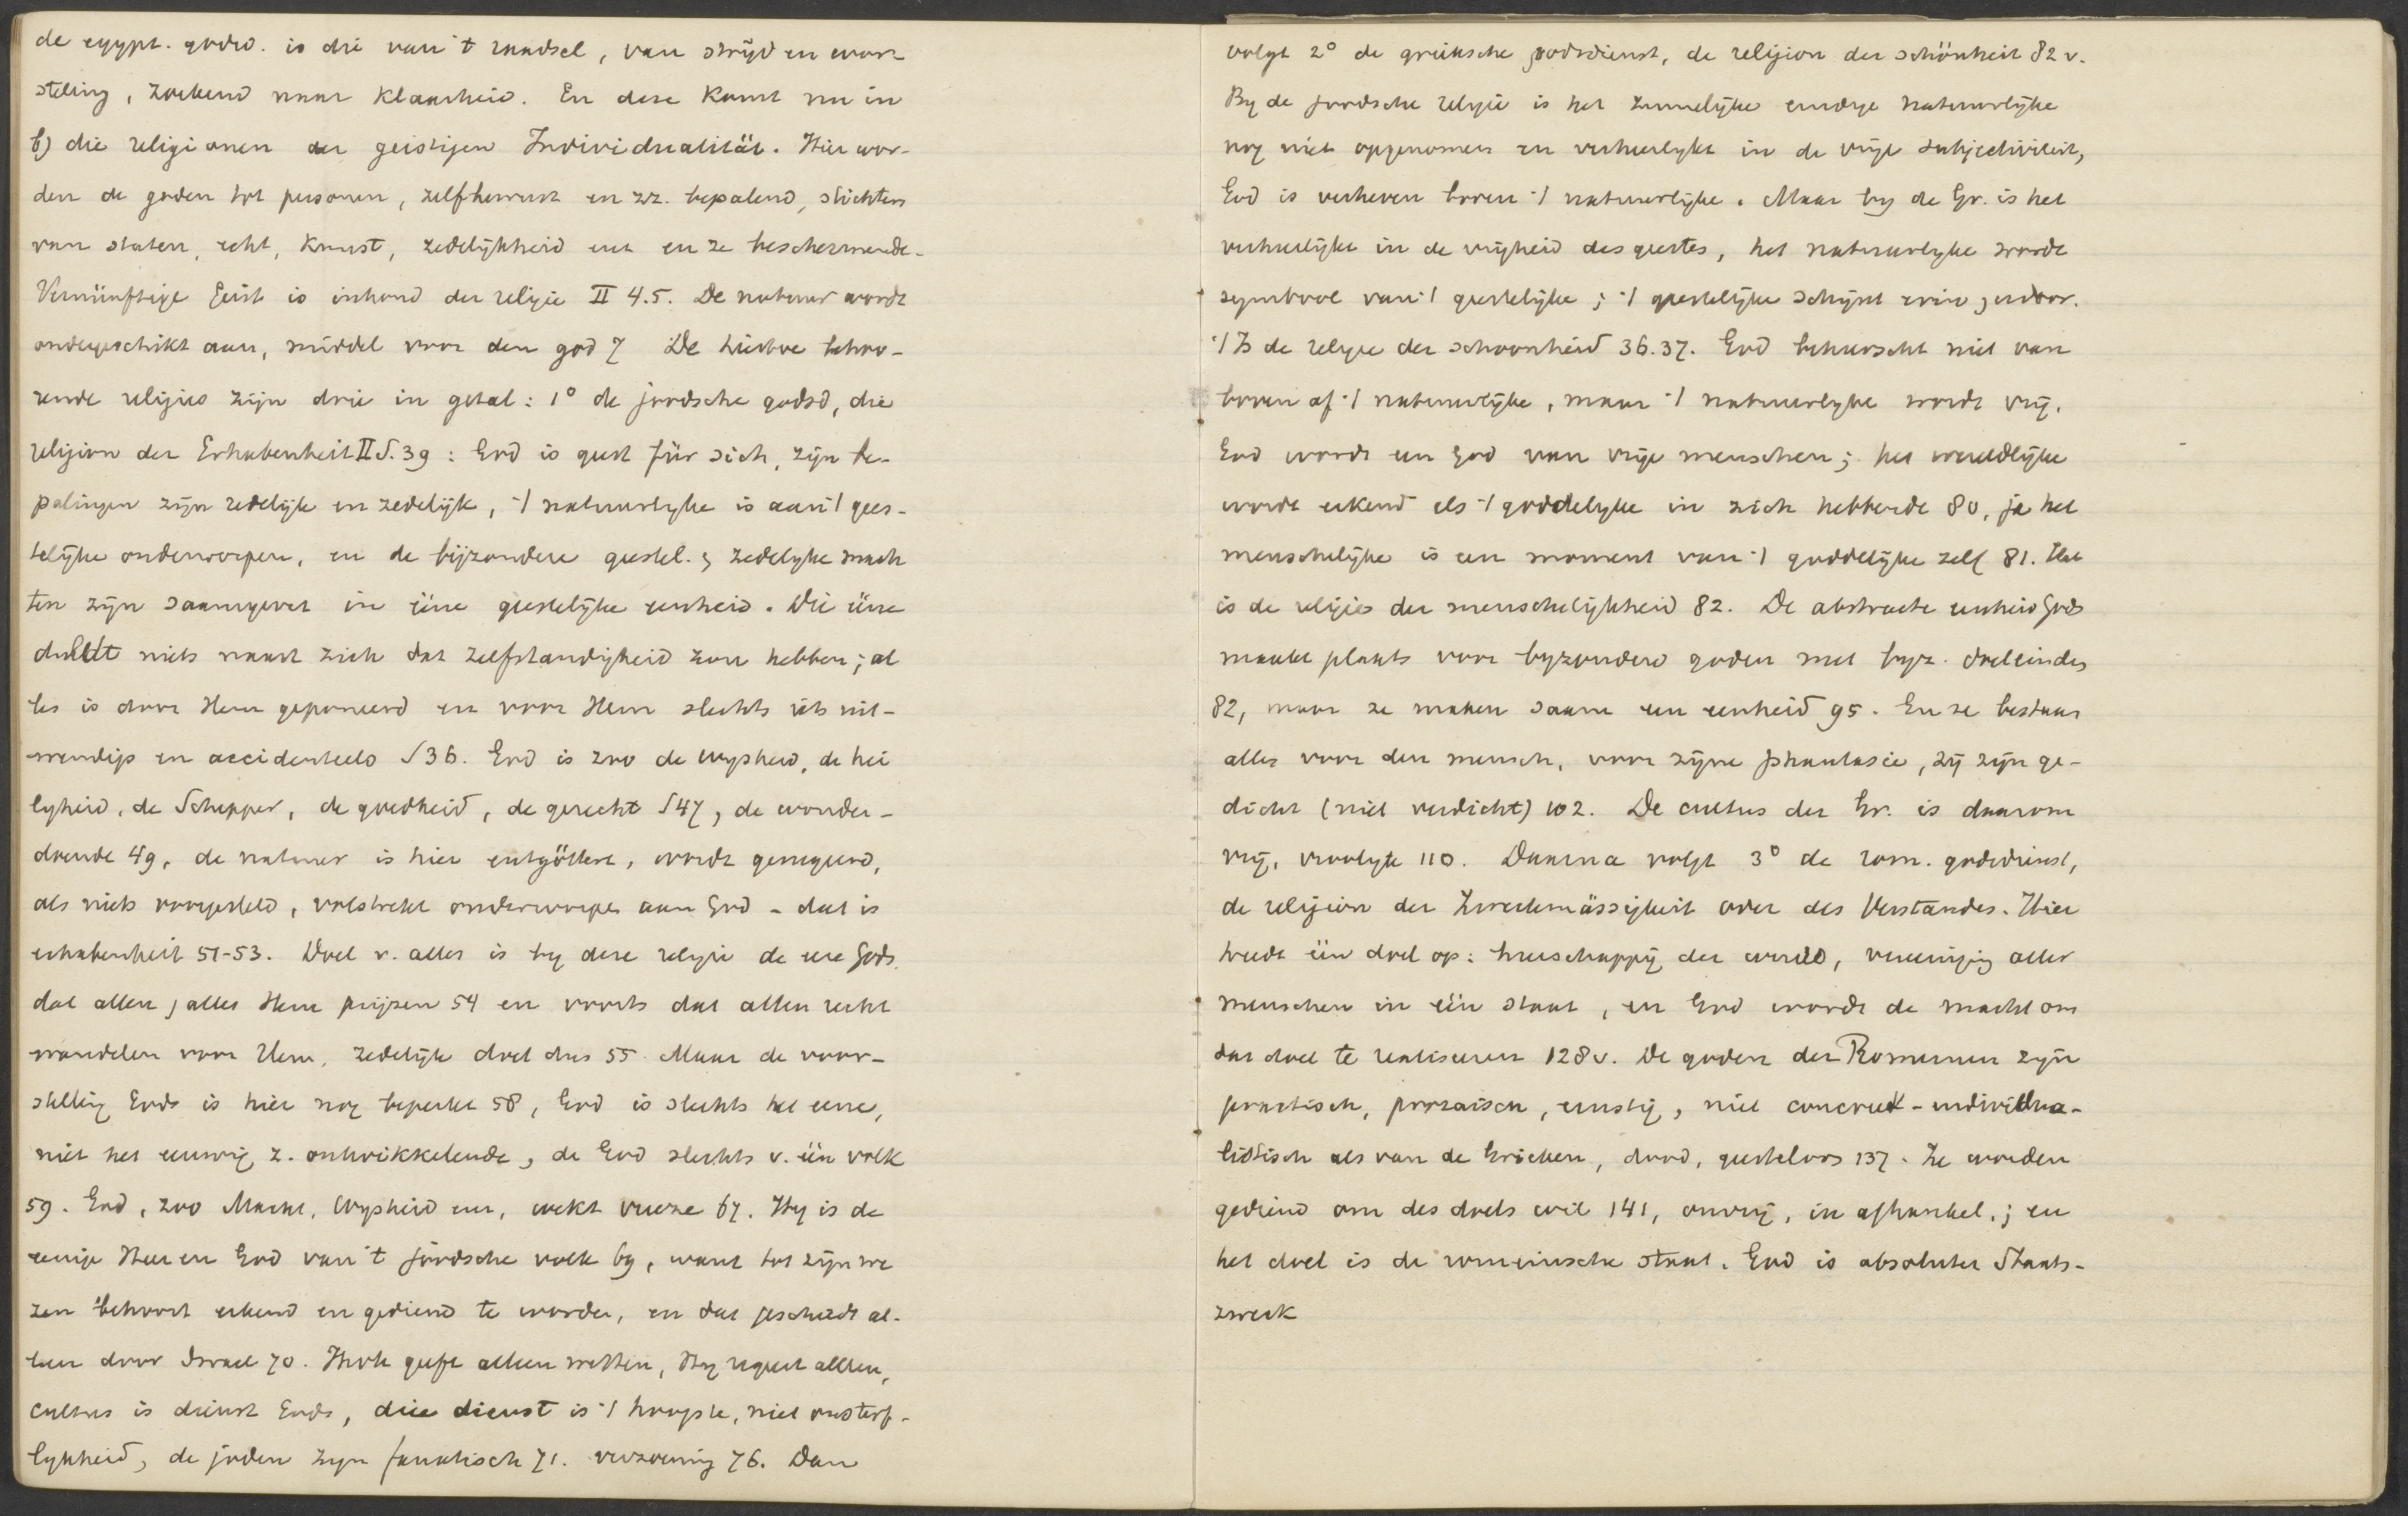 de egypt. godsd. is die van 't raadsel, van strijd en wor-
steling, zoekend naar klaarheid. En deze komt nu in
b) die religionen der geistigen Individualität. Hier wor-
den de goden tot personen, zelfbewust en zz. bepalend, stichters
van staten, recht, kunst, zedelijkheid enz en ze beschermende.
Vernünftige Geist is inhoud der religie II 4.5. De natuur wordt
ondergeschikt aan, middel voor den god 7 De hiertoe behoo-
rende religies zijn drie in getal: 1° de joodsche godsd, die
religion der Erhabenheit II S. 39: God is geest für sich, zijn be-
palingen zijn redelijk en zedelijk, 't natuurlyke is aan 't gees-
telijke onderworpen, en de bijzondere geestel. & zedelyke mach
ten zijn saamgevat in ééne geestelijke eenheid. Die ééne
duldt niets naast zich dat zelfstandigheid zou hebben; al
les is door Hem geponeerd en voor Hem slechts iets uit-
wendigs en accidenteels S 36. God is zoo de wysheid, de hei
lygheid, de Schepper, de goedheid, de gerecht S 47, de wonder-
doende 49, de natuur is hier entgöttert, wordt genegeerd,
als niets voorgesteld, volstrekt onderworpen aan God - dat is
erhabenheit 51-53. Doel v. alles is by deze religie de eere Gods
dat allen & alles Hem prijzen 54 en voorts dat allen recht
wandelen voor Hem, zedelijk doel dus 55. Maar de voor-
stelling Gods is hier nog beperkt 58, God is slechts het eene,
niet het eeuwig z. ontwikkelende, de God slechts v. één volk
59. God, zoo Macht, Wysheid enz, wekt vreeze 67. Hy is de
eenige Heer en God van 't joodsche volk 69, want tot zijn we
zen behoort erkend en gediend te worden, en dat geschiedt al-
leen door Israel 70. Hij geeft alleen wetten, Hy regeert alleen,
cultus is dienst Gods, die dienst is 't hoogste, niet onsterf-
lykheid, de joden zyn fanatisch 71. verzoening 76. Dan
volgt 2° de grieksche godsdienst, de religion der schönheit 82 v.
By de joodsche religie is het zinnelijke eindige natuurlyke
nog niet opgenomen en verheerlykt in de vrije subjectiviteit,
God is verheven boven 't natuurlijke. Maar by de Gr. is het
verheerlijkt in de vrijheid des geestes, het natuurlyke wordt
symbool van 't geestelijke; 't geestelijke schijnt erin & erdoor.
't Is de religie der schoonheid 36.37. God beheerscht niet van
boven af 't natuurlijke, maar 't natuurlyke wordt vrij.
God wordt een God van vrije menschen; het wereldlijke
wordt erkend als 't goddelyke in zich hebbende 80, ja het
menschelijke is een moment van 't goddelijke zelf 81. Het
is de religie der menschelijkheid 82. De abstracte eenheid Gods
maakt plaats voor byzondere goden met byz. doeleinden
82, maar ze maken saam een eenheid 95. En ze bestaan
alles voor den mensch, voor zijne phantasie, zij zijn ge-
dicht (niet verdicht) 102. De cultus der Gr. is daarom
vrij, vroolyk 110. Daarna volgt 3° de rom. godsdienst,
de religion der Zweckmässigkeit oder des Verstandes. Hier
treedt één doel op: heerschappij der wereld, vereeniging aller
menschen in één staat, en God wordt de macht om
dat doel te realiseeren 128 v. De goden der Romeinen zijn
practisch, prozaisch, ernstig, niet concreet-individua-
listisch als van de Grieken, dood, geesteloos 137. Ze worden
gediend om des doels wil 141, onvrij, in afhankel.; en
het doel is de romeinsche staat. God is absoluter Staats-
zweck